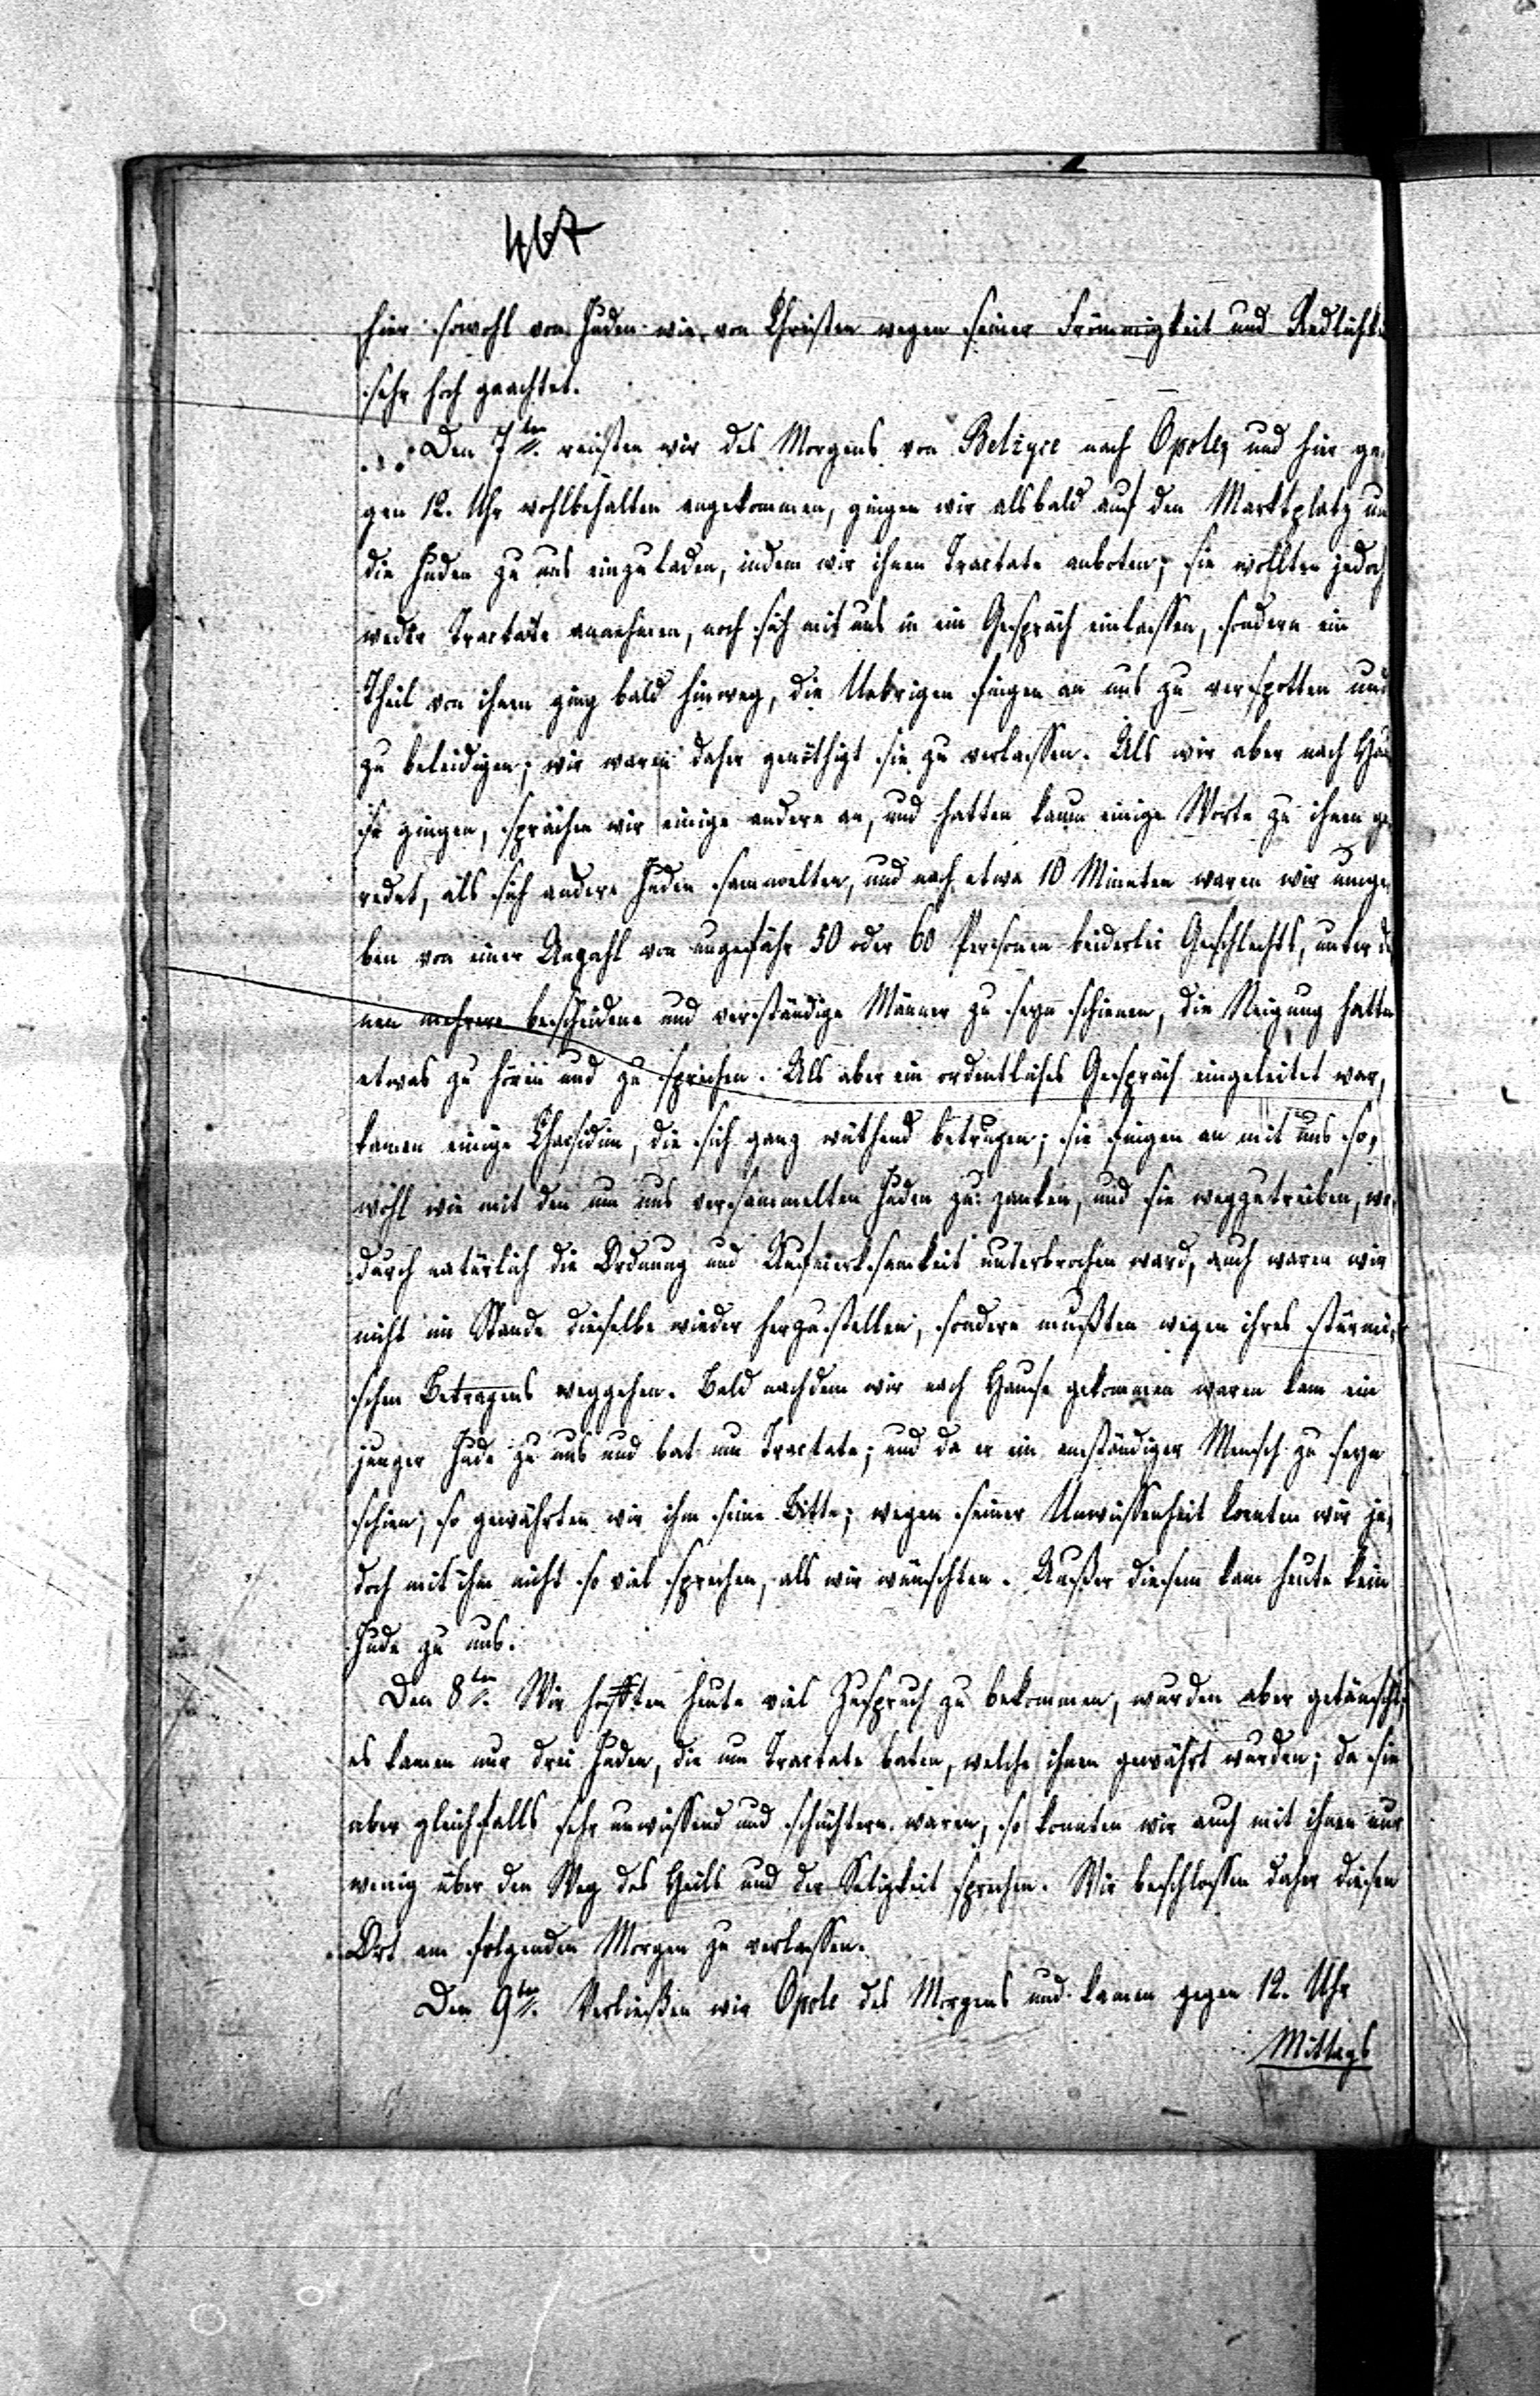 467
hier sowohl von Juden wie von Christen wegen seiner Frömmigkeit und Redlichk
sehr hoch geachtet.
Den 7ten reisten wir des Morgens von Belzyce nach Opole, und hier ge-
gen 12. Uhr wohlbehalten angekommen, gingen wir alsbald auf den Marktplatz um
die Juden zu uns einzuladen, indem wir ihnen Tractate anboten; sie wollten jedoch
weder Tractate annehmen, noch sich mit uns in ein Gespräch einlassen, sondern ein
Theil von ihnen ging bald hinweg, die Uebrigen fingen an uns zu verspotten und
zu beleidigen; wir waren daher genöthigt sie zu verlassen. Als wir aber nach Hau
se gingen, sprachen wir einige andere an, und hatten kaum einige Worte zu ihnen ge-
redet, als sich andere Juden sammelten, und nach etwa 10 Minuten waren wir umge-
ben von einer Anzahl von ungefähr 50 oder 60 Personen beiderlei Geschlechts, unter de
nen mehrere bescheidene und verständige Männer zu seyn schienen, die Neigung hatten
etwas zu hören und zu sprechen. Als aber ein ordentliches Gespräch eingeleitet war,
kamen einige Chasidim, die sich ganz wüthend betrugen; sie fingen an mit uns so-
wohl wie mit den um uns versammelten Juden zu zanken, und sie wegzutreiben, wo-
durch natürlich die Ordnung und Aufmerksamkeit unterbrochen ward, auch waren wir
nicht im Stande dieselbe wieder herzustellen, sondern mußten wegen ihres stürmi-
schen Betragens weggehen. Bald nachdem wir nach Hause gekommen waren kam ein
junger Jude zu uns und bat um Tractate; und da er ein anständiger Mensch zu seyn
schien, so gewährten wir ihm seine Bitte; wegen seiner Unwissenheit konnten wir je-
doch mit ihm nicht so viel sprechen, als wir wünschten. Außer diesem kam heute kein
Jude zu uns.
Den 8ten Wir hofften heute viel Zuspruch zu bekommen, wurden aber getäuscht;
es kamen nur drei Juden, die um Tractate baten, welche ihnen gewährt wurden; da sie
aber gleichfalls sehr unwissend und schüchtern waren, so konnten wir auch mit ihnen nur
wenig über den Weg des Heils und der Seligkeit sprechen. Wir beschlossen daher diesen
Ort am folgenden Morgen zu verlassen.
Den 9ten Verließen wir Opole des Morgens und kamen gegen 12. Uhr
Mittags